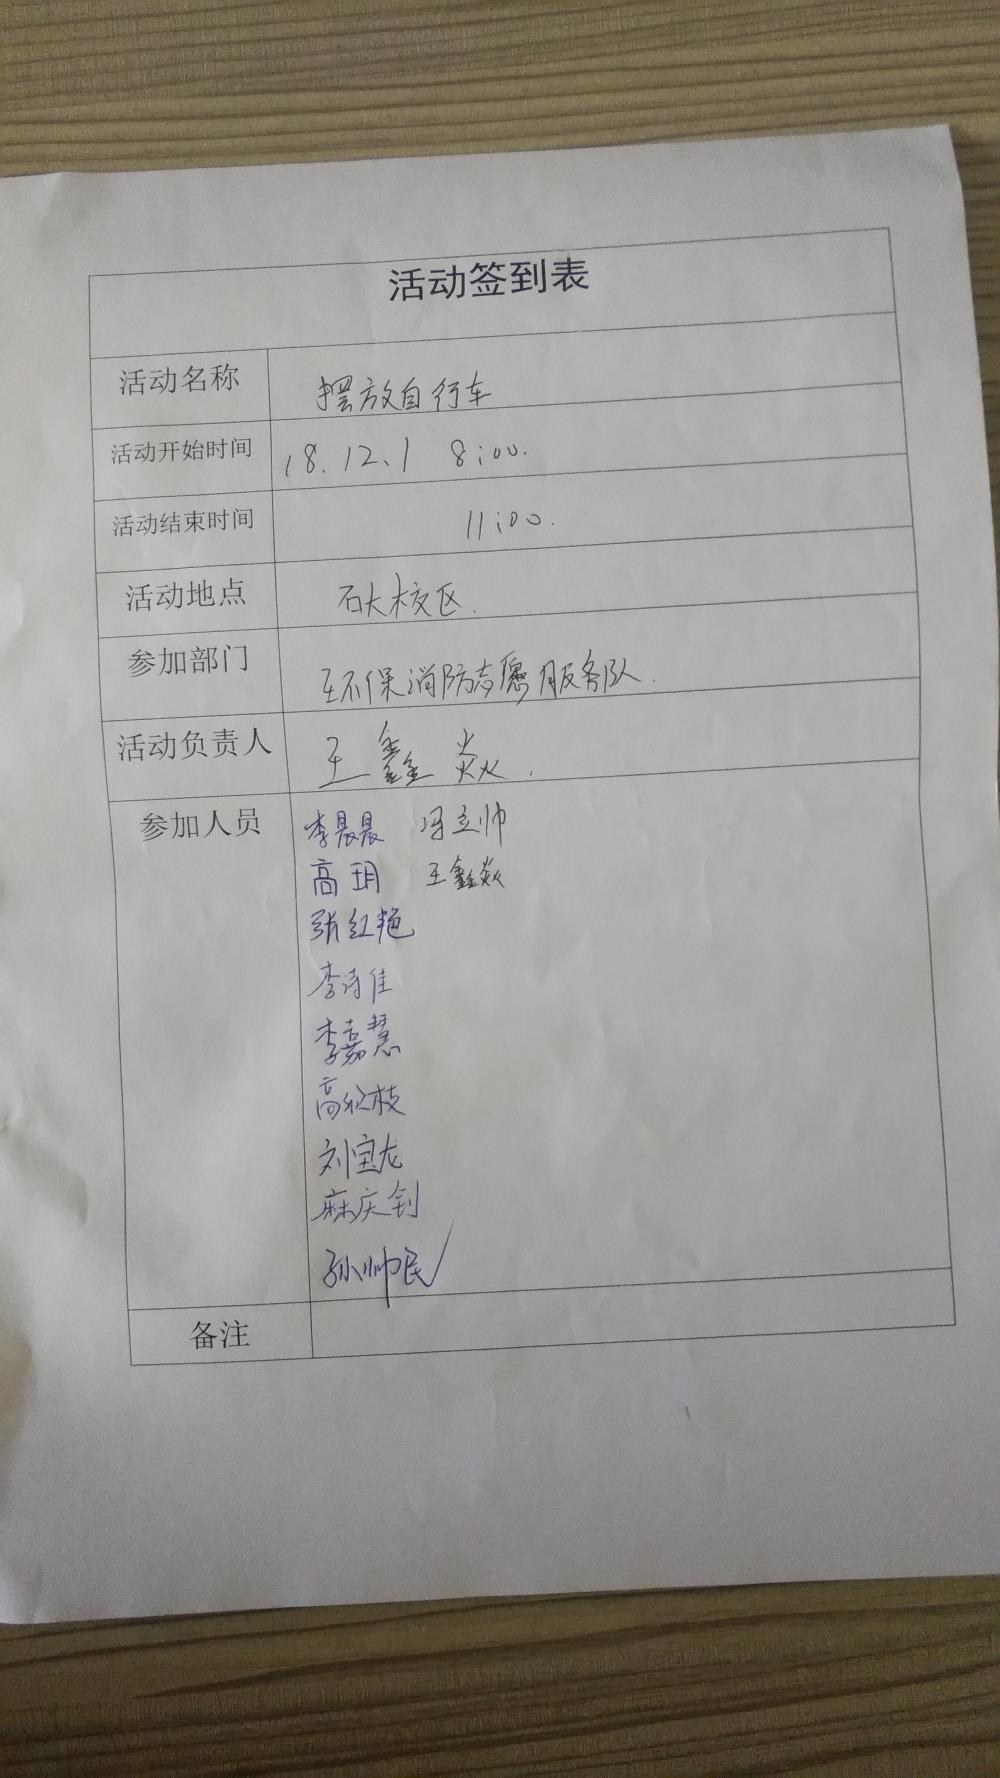 活动签到表
活动名称 摆放自行车
活动开始时间 18.12、1 8:00.
活动结束时间 11:00.
活动地点 石大校区.
参加部门 环保消防志愿服务队.
活动负责人 王鑫焱.
参加人员 李晨晨 冯立帅
高玥 王鑫焱
张红艳
李诗佳
李嘉慧
高欣枝
刘宝龙
麻庆钊
孙帅民
备注